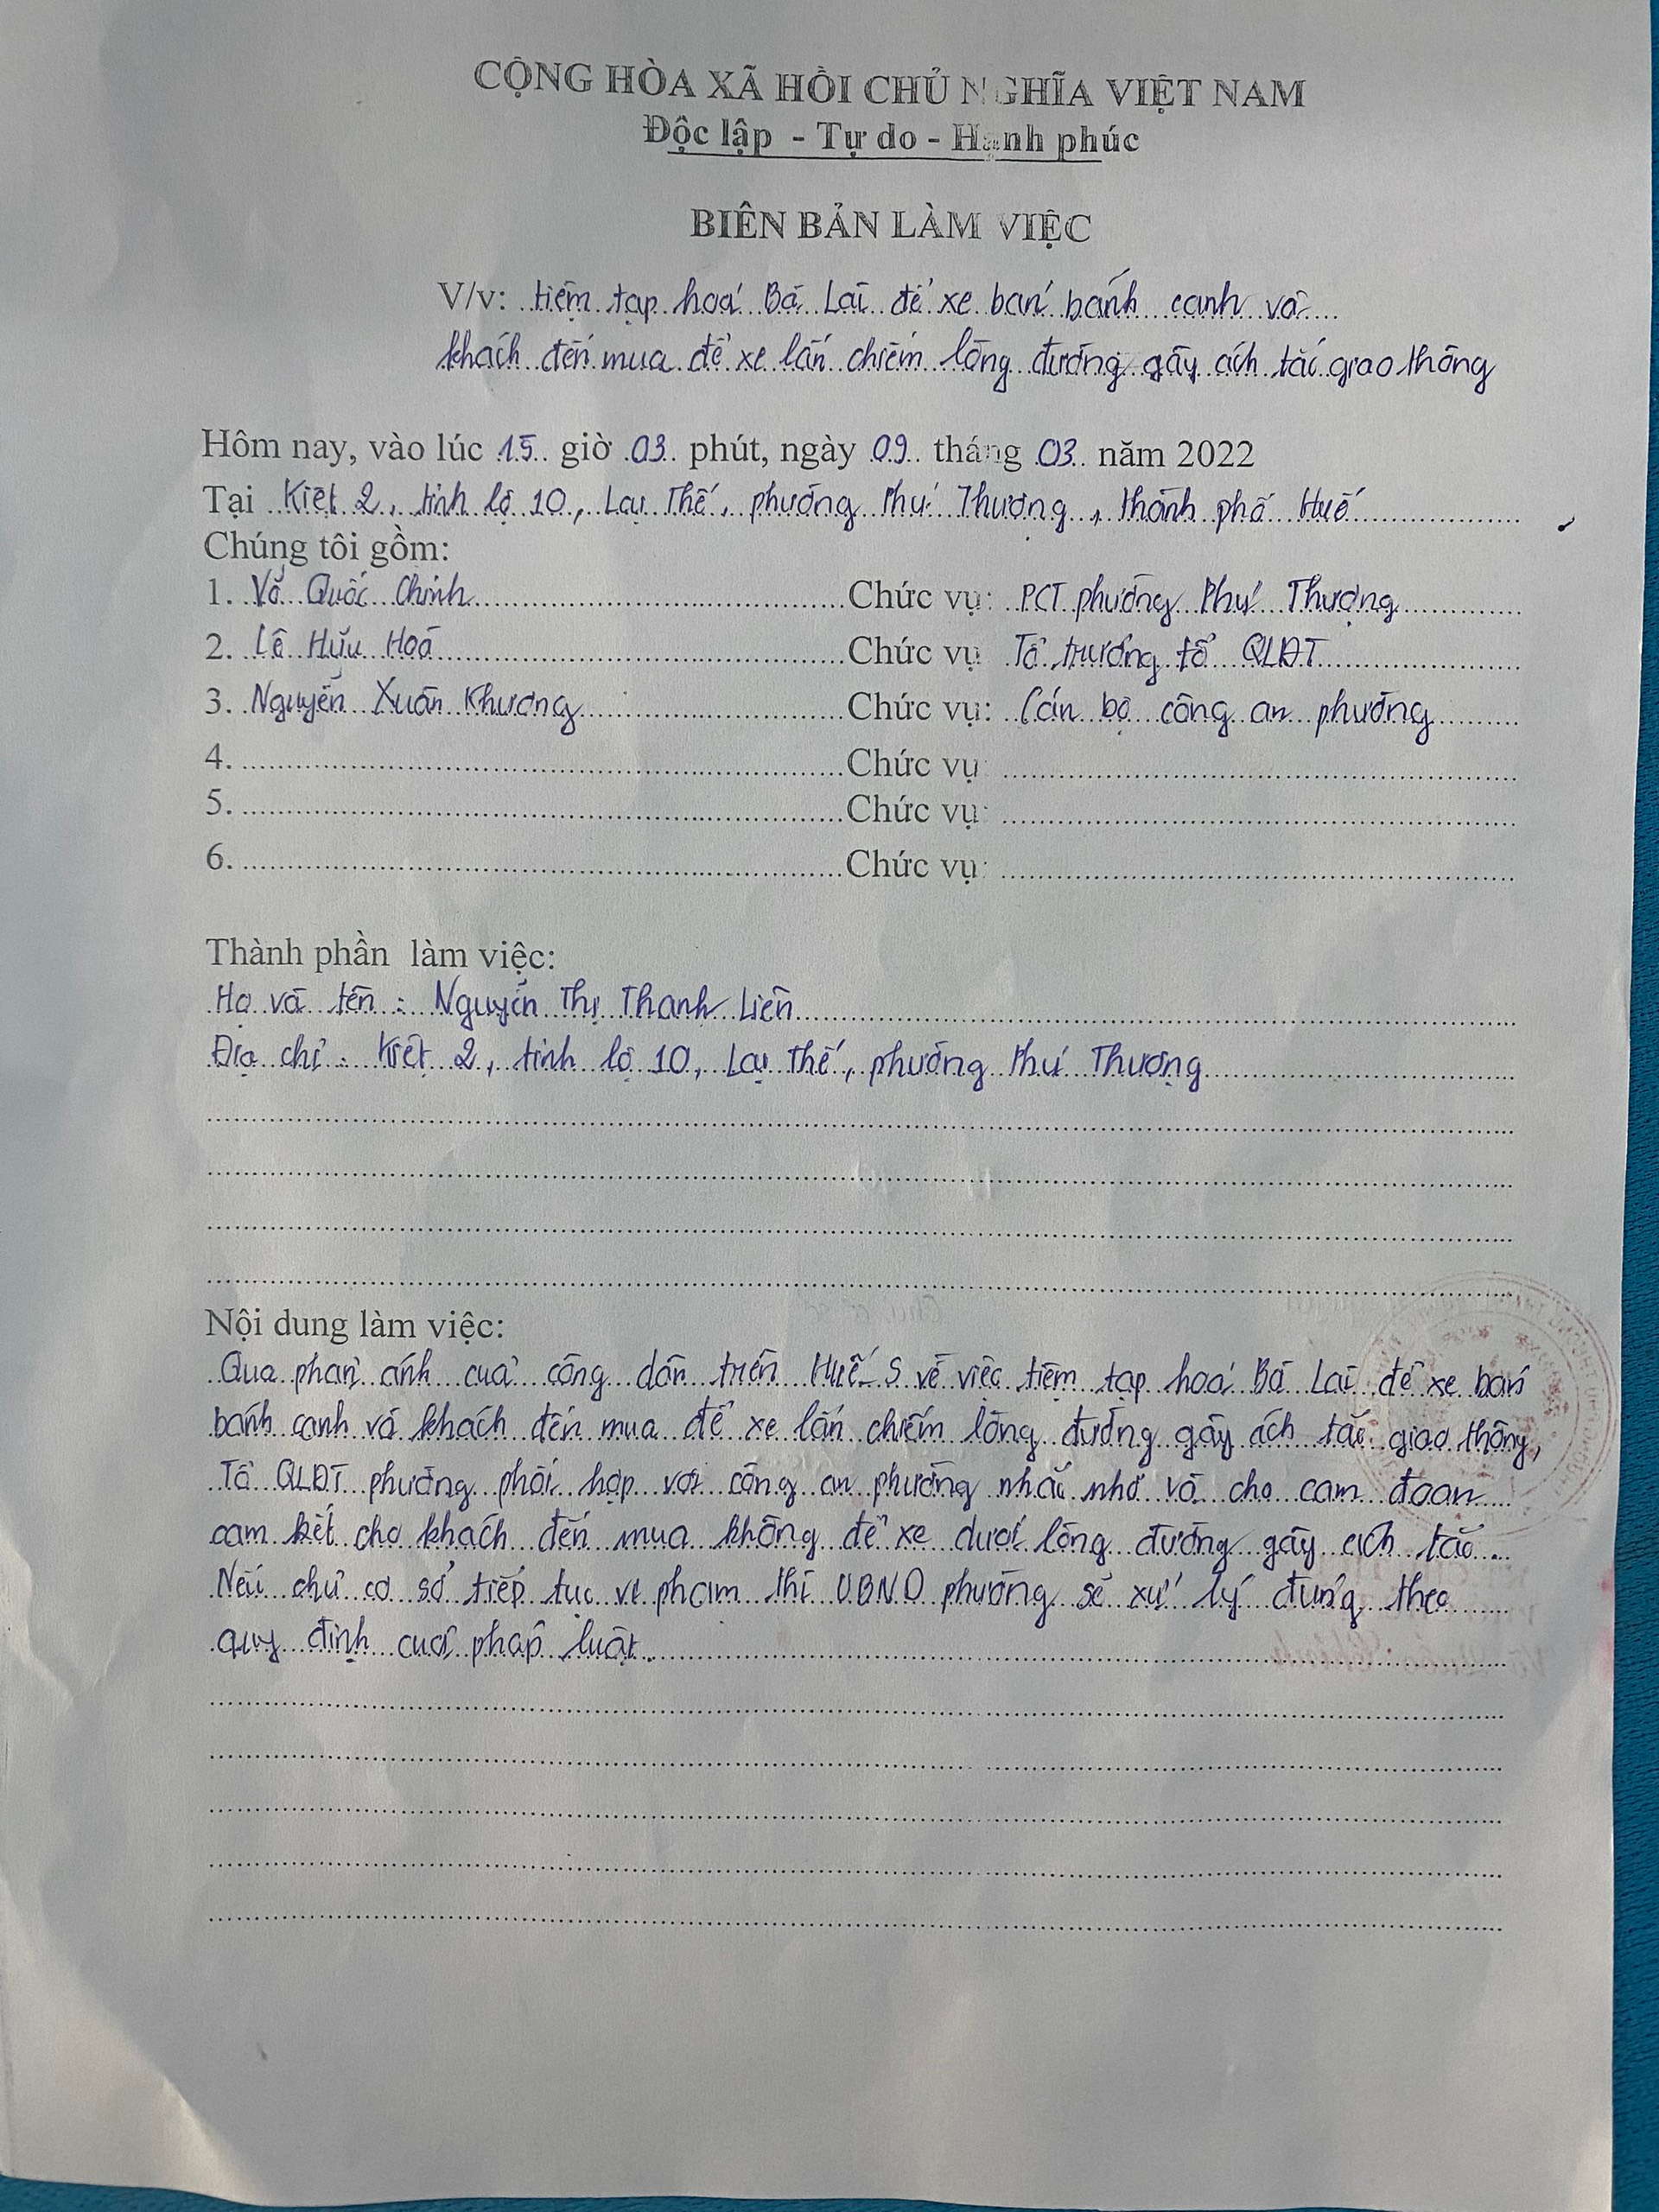 CỘNG HÒA XÃ HỒI CHỦ NGHĨA VIỆT NAM
Độc lập - Tự do - Hạnh phúc
BIÊN BẢN LÀM VIỆC
V/v: tiệm tạp hoá Bà Lai để xe bán bánh canh và
khách đến mua để xe lấn chiếm lòng đường gây ách tắc giao thông
Hôm nay, vào lúc 15 giờ 03 phút, ngày 09 tháng 03 năm 2022
Tại Kiệt 2, tỉnh lộ 10, Lại Thế, phường Phú Thượng, thành phố Huế
Chúng tôi gồm:
1. Võ Quốc Chinh Chức vụ: PCT phường Phú Thượng
2. Lê Hữu Hoà Chức vụ Tổ trưởng tổ QLĐT
3. Nguyễn Xuân Khương Chức vụ: Cán bộ công an phường
4. Chức vụ
5. Chức vụ:
6. Chức vụ:
Thành phần làm việc:
Họ và tên : Nguyễn Thị Thanh Liên
Địa chỉ : Kiệt 2, tỉnh lộ 10, Lại Thế, phường Phú Thượng
Nội dung làm việc:
Qua phản ánh của công dân trên Huế-S về việc tiệm tạp hoá Bà Lai để xe bán
bánh canh và khách đến mua để xe lấn chiếm lòng đường gây ách tắc giao thông,
Tổ QLĐT phường phối hợp với công an phường nhắc nhở và cho cam đoan
cam kết cho khách đến mua không để xe dưới lòng đường gây ách tắc.
Nếu chủ cơ sở tiếp tục vi phạm thì UBND phường sẽ xử lý đúng theo
quy định của pháp luật.